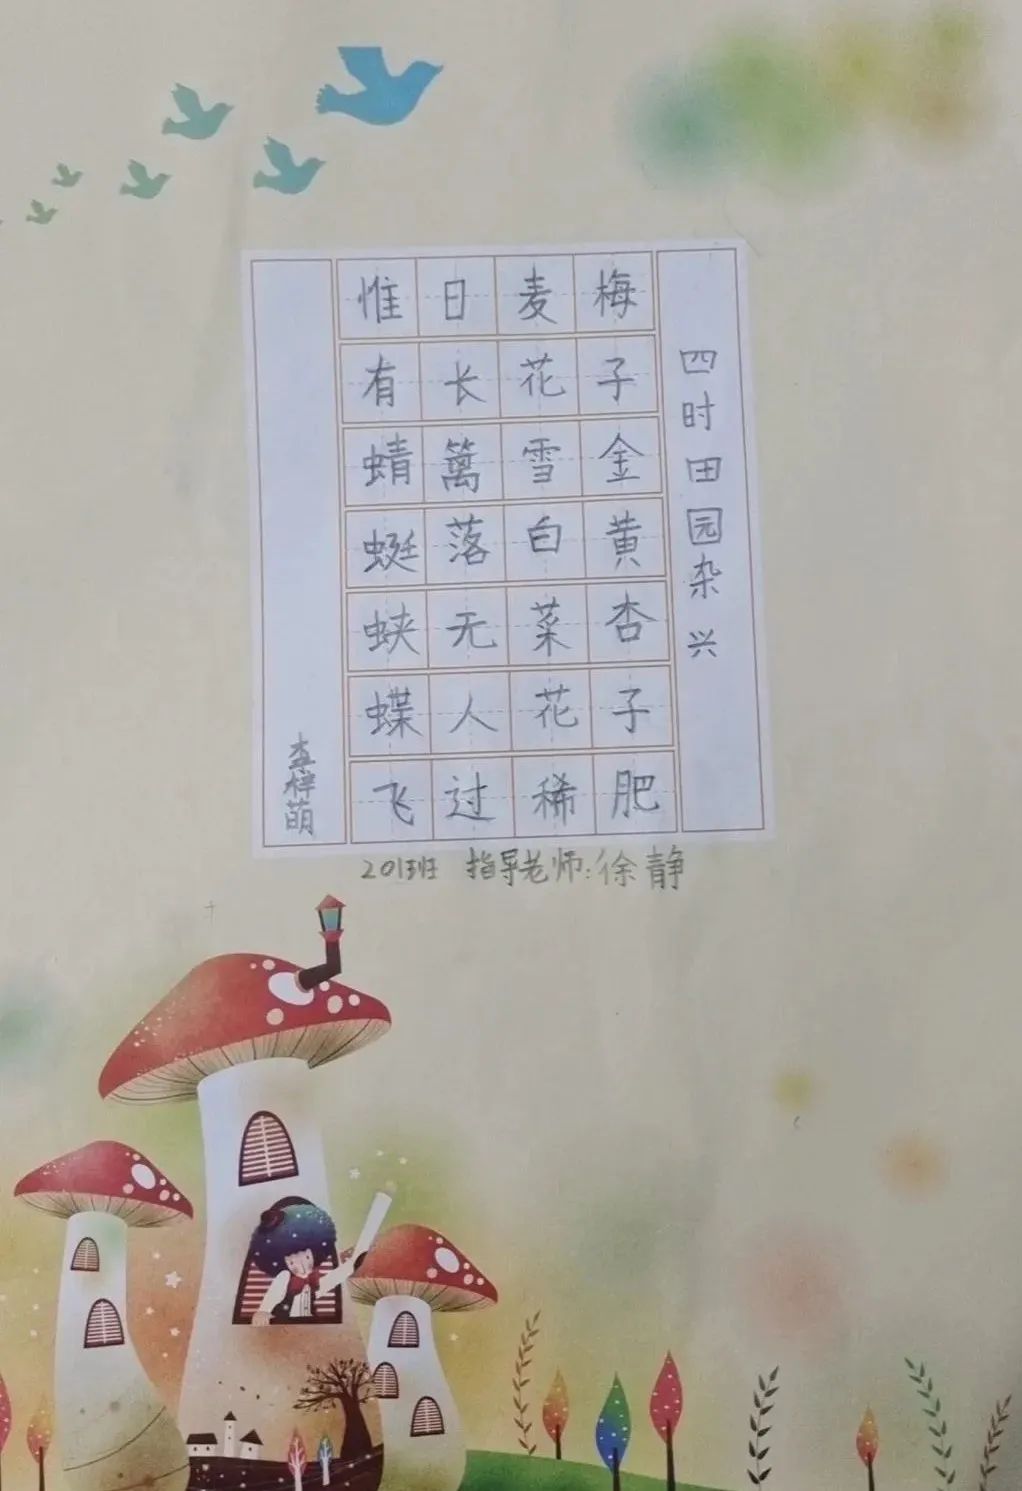 四时田园杂兴
梅子金黄杏子肥
麦花雪白菜花稀
日长篱落无人过
惟有蜻蜓蛱蝶飞
李梓萌
2013班 指导老师:徐静